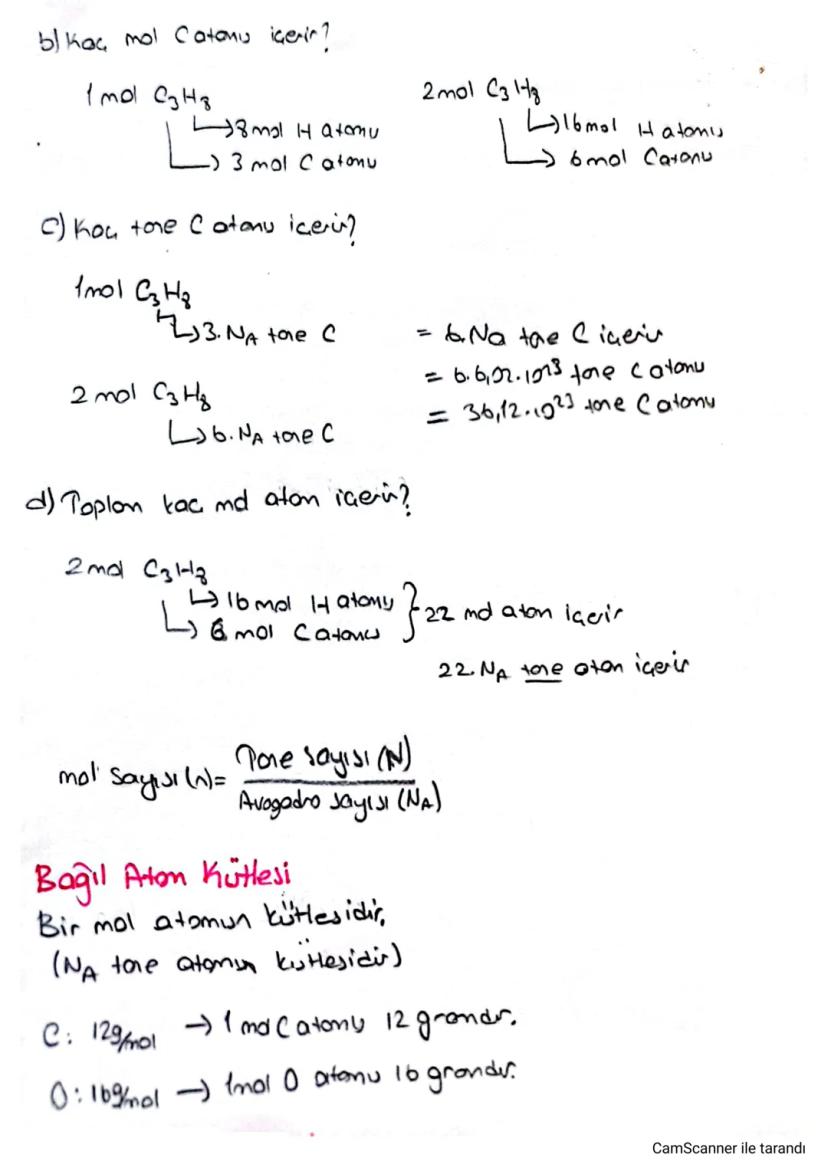 b) Kaç mol C atomu içerir?
1 mol C3H8
→ 8 mol H atomu
→ 3 mol C atomu
2 mol C3H8
→ 16 mol H atomu
→ 6 mol C atomu
c) Kaç tane C atomu içerir?
1 mol C3H8
→ 3.NA tane C
2 mol C3H8
→ 6.NA tane C
= 6.Na tane C içerir
= 6.6,02.10²³ tane C atomu
= 36,12.10²³ tane C atomu
d) Toplam kaç mol atom içerir?
2 mol C3H8
→ 16 mol H atomu
→ 6 mol C atomu
} 22 mol atom içerir
22.NA tane atom içerir
mol sayısı (n) = Tane sayısı (N)
Avogadro sayısı (NA)
Bağıl Atom Kütlesi
Bir mol atomun kütlesidir.
(NA tane atomun kütlesidir)
C: 12g/mol → 1 mol C atomu 12 gramdır.
O: 16g/mol → 1mol O atomu 16 gramdır.
CamScanner ile tarandı